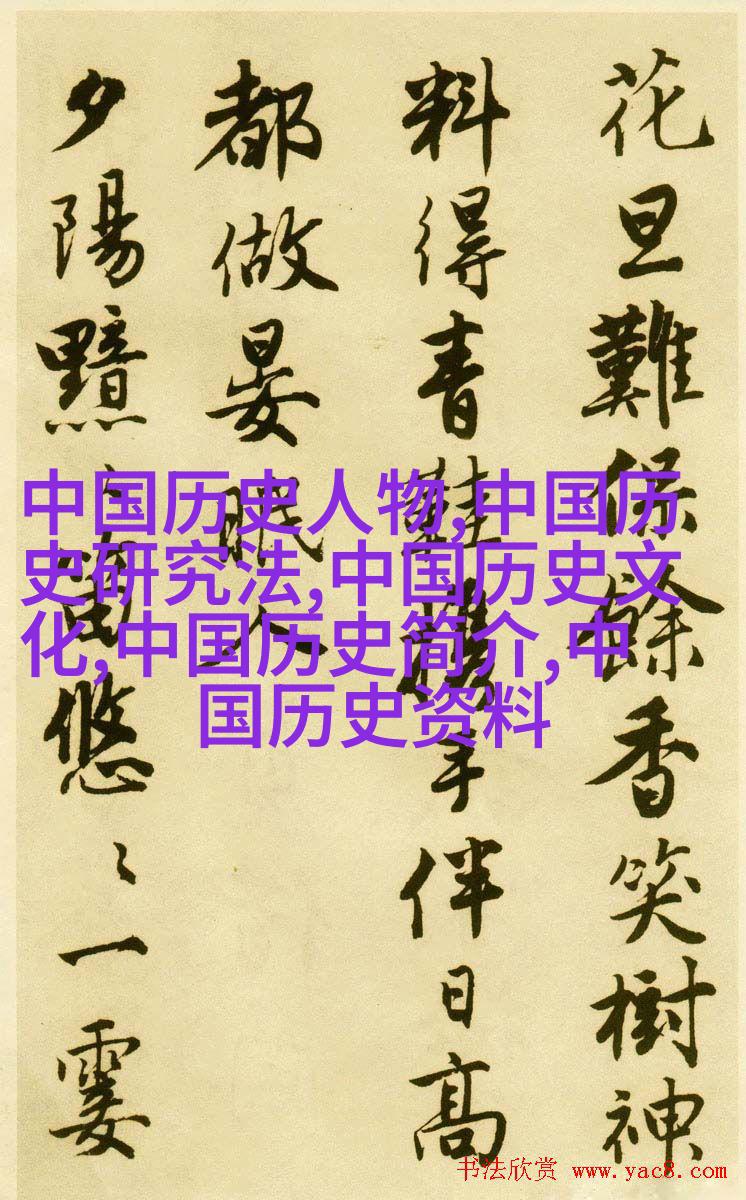 花旦難保餘香笑樹神
料得青鞋攜手伴日高
都做晏眠人
夕陽黯〻悠〻一霎
中国历史人物,中国历
史研究法,中国历史文
化,中国历史简介,中
国历史资料
书法欣赏 www.yac8.com